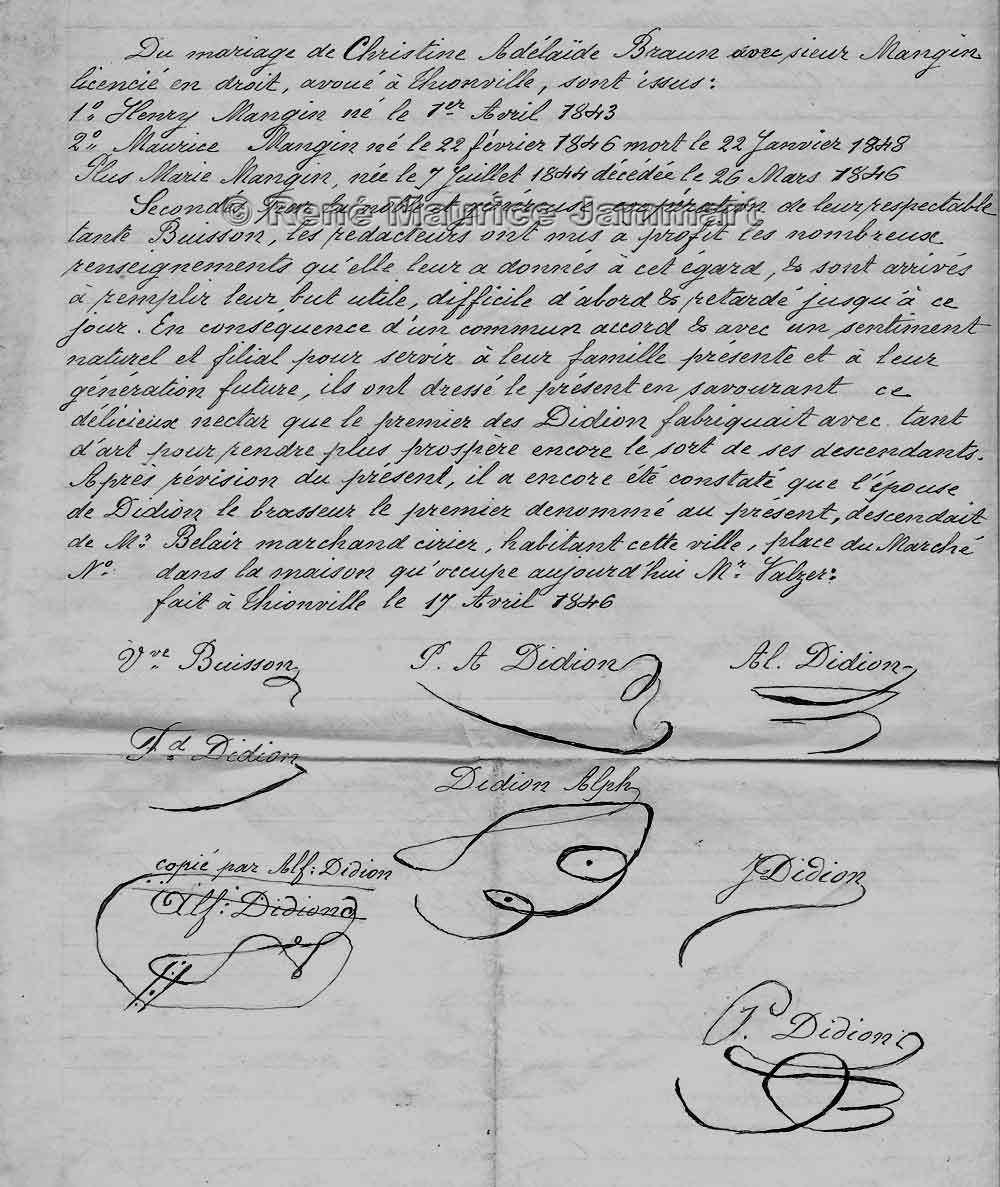 Du mariage de Christine Adélaïde Braun avec sieur Mangin
licencié en droit, avoué à Thionville, sont issus:
1º Henry Mangin né le 1er Avril 1843
2º Maurice Mangin né le 22 février 1846 mort le 22 Janvier 1848
Plus Marie Mangin, née le 7 Juillet 1844 décédée le 26 Mars 1846
© René Maurice Jammart
Secondés par la noble et généreuse coopération de leur respectable
tante Buisson, les rédacteurs ont mis à profit les nombreux
renseignements qu'elle leur a donnés à cet égard, & sont arrivés
à remplir leur but utile, difficile d'abord & retardé jusqu'à ce
jour. En conséquence d'un commun accord & avec un sentiment
naturel et filial pour servir à leur famille présente et à leur
génération future, ils ont dressé le présent en savourant ce
délicieux nectar que le premier des Didion fabriquait avec tant
d'art pour rendre plus prospère encore le sort de ses descendants.
Après révision du présent, il a encore été constaté que l'épouse
de Didion le brasseur le premier denommé au présent, descendait
de Mr Belair marchand cirier, habitant cette ville, place du Marché
Nº dans la maison qu'occupe aujourd'hui Mr Valzer:
fait à Thionville le 17 Avril 1846
Vve Buisson P. A Didion Al. Didion
Fd Didion
Didion Alph
copié par Alf: Didion
Alf: Didion
J Didion
P. Didion